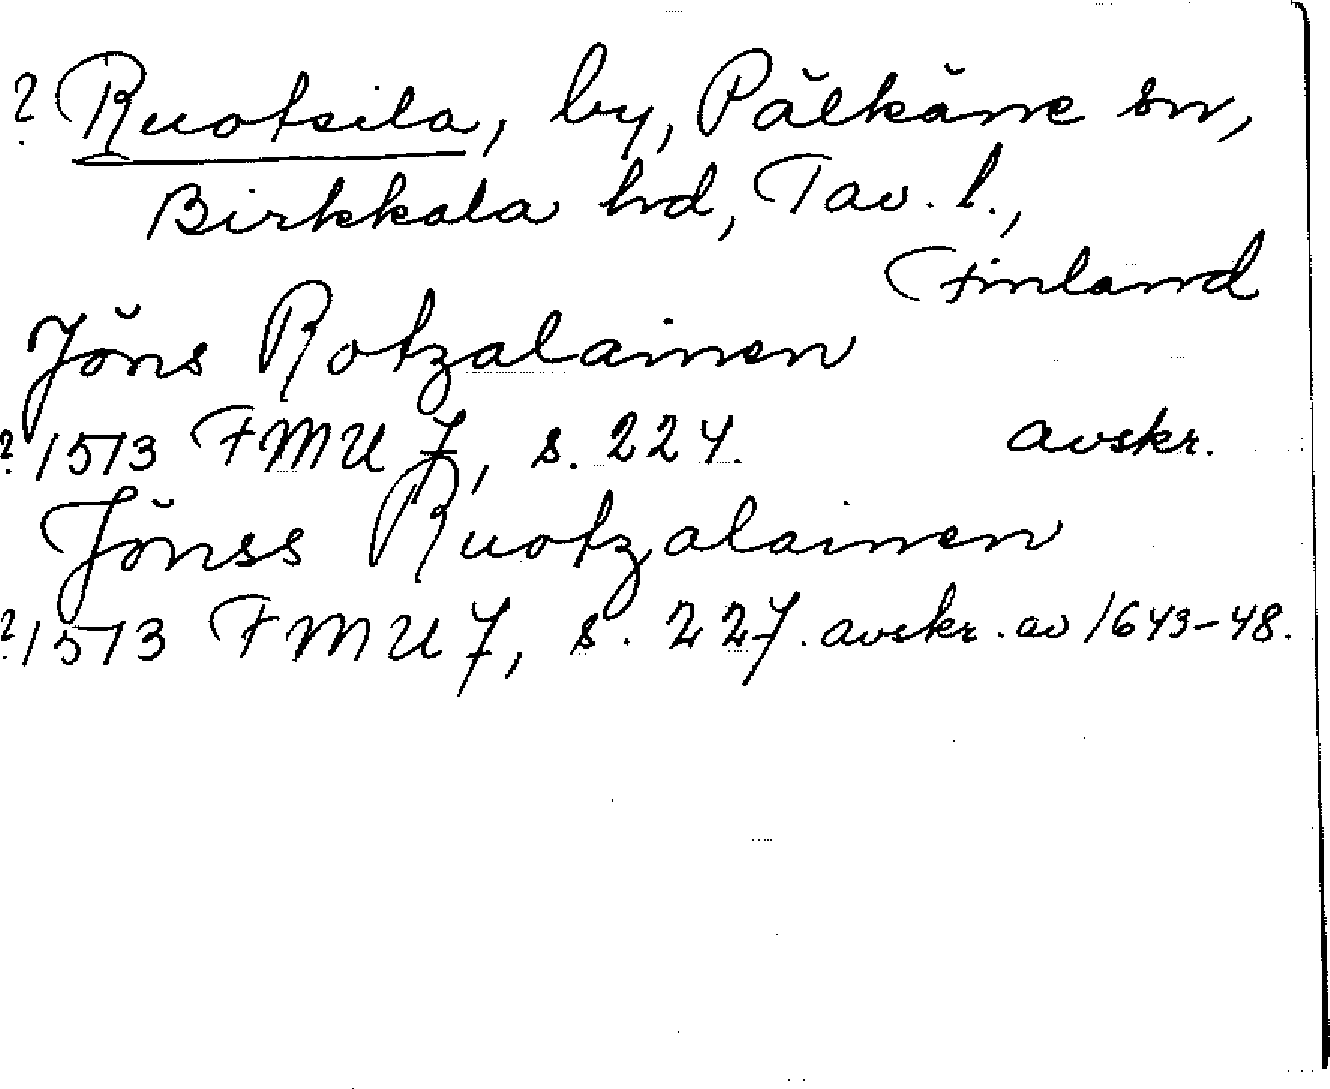 ? Ruotsila, by, Pälkäne sn,
Birkkala hd, Tav. l.,
Finland
Jöns Rotzalainen
? 1513 FMU 7, s. 224. avskr.
Jönss Ruotzalainen
? 1513 FMU 7, s. 227. avskr. av 1643-48.